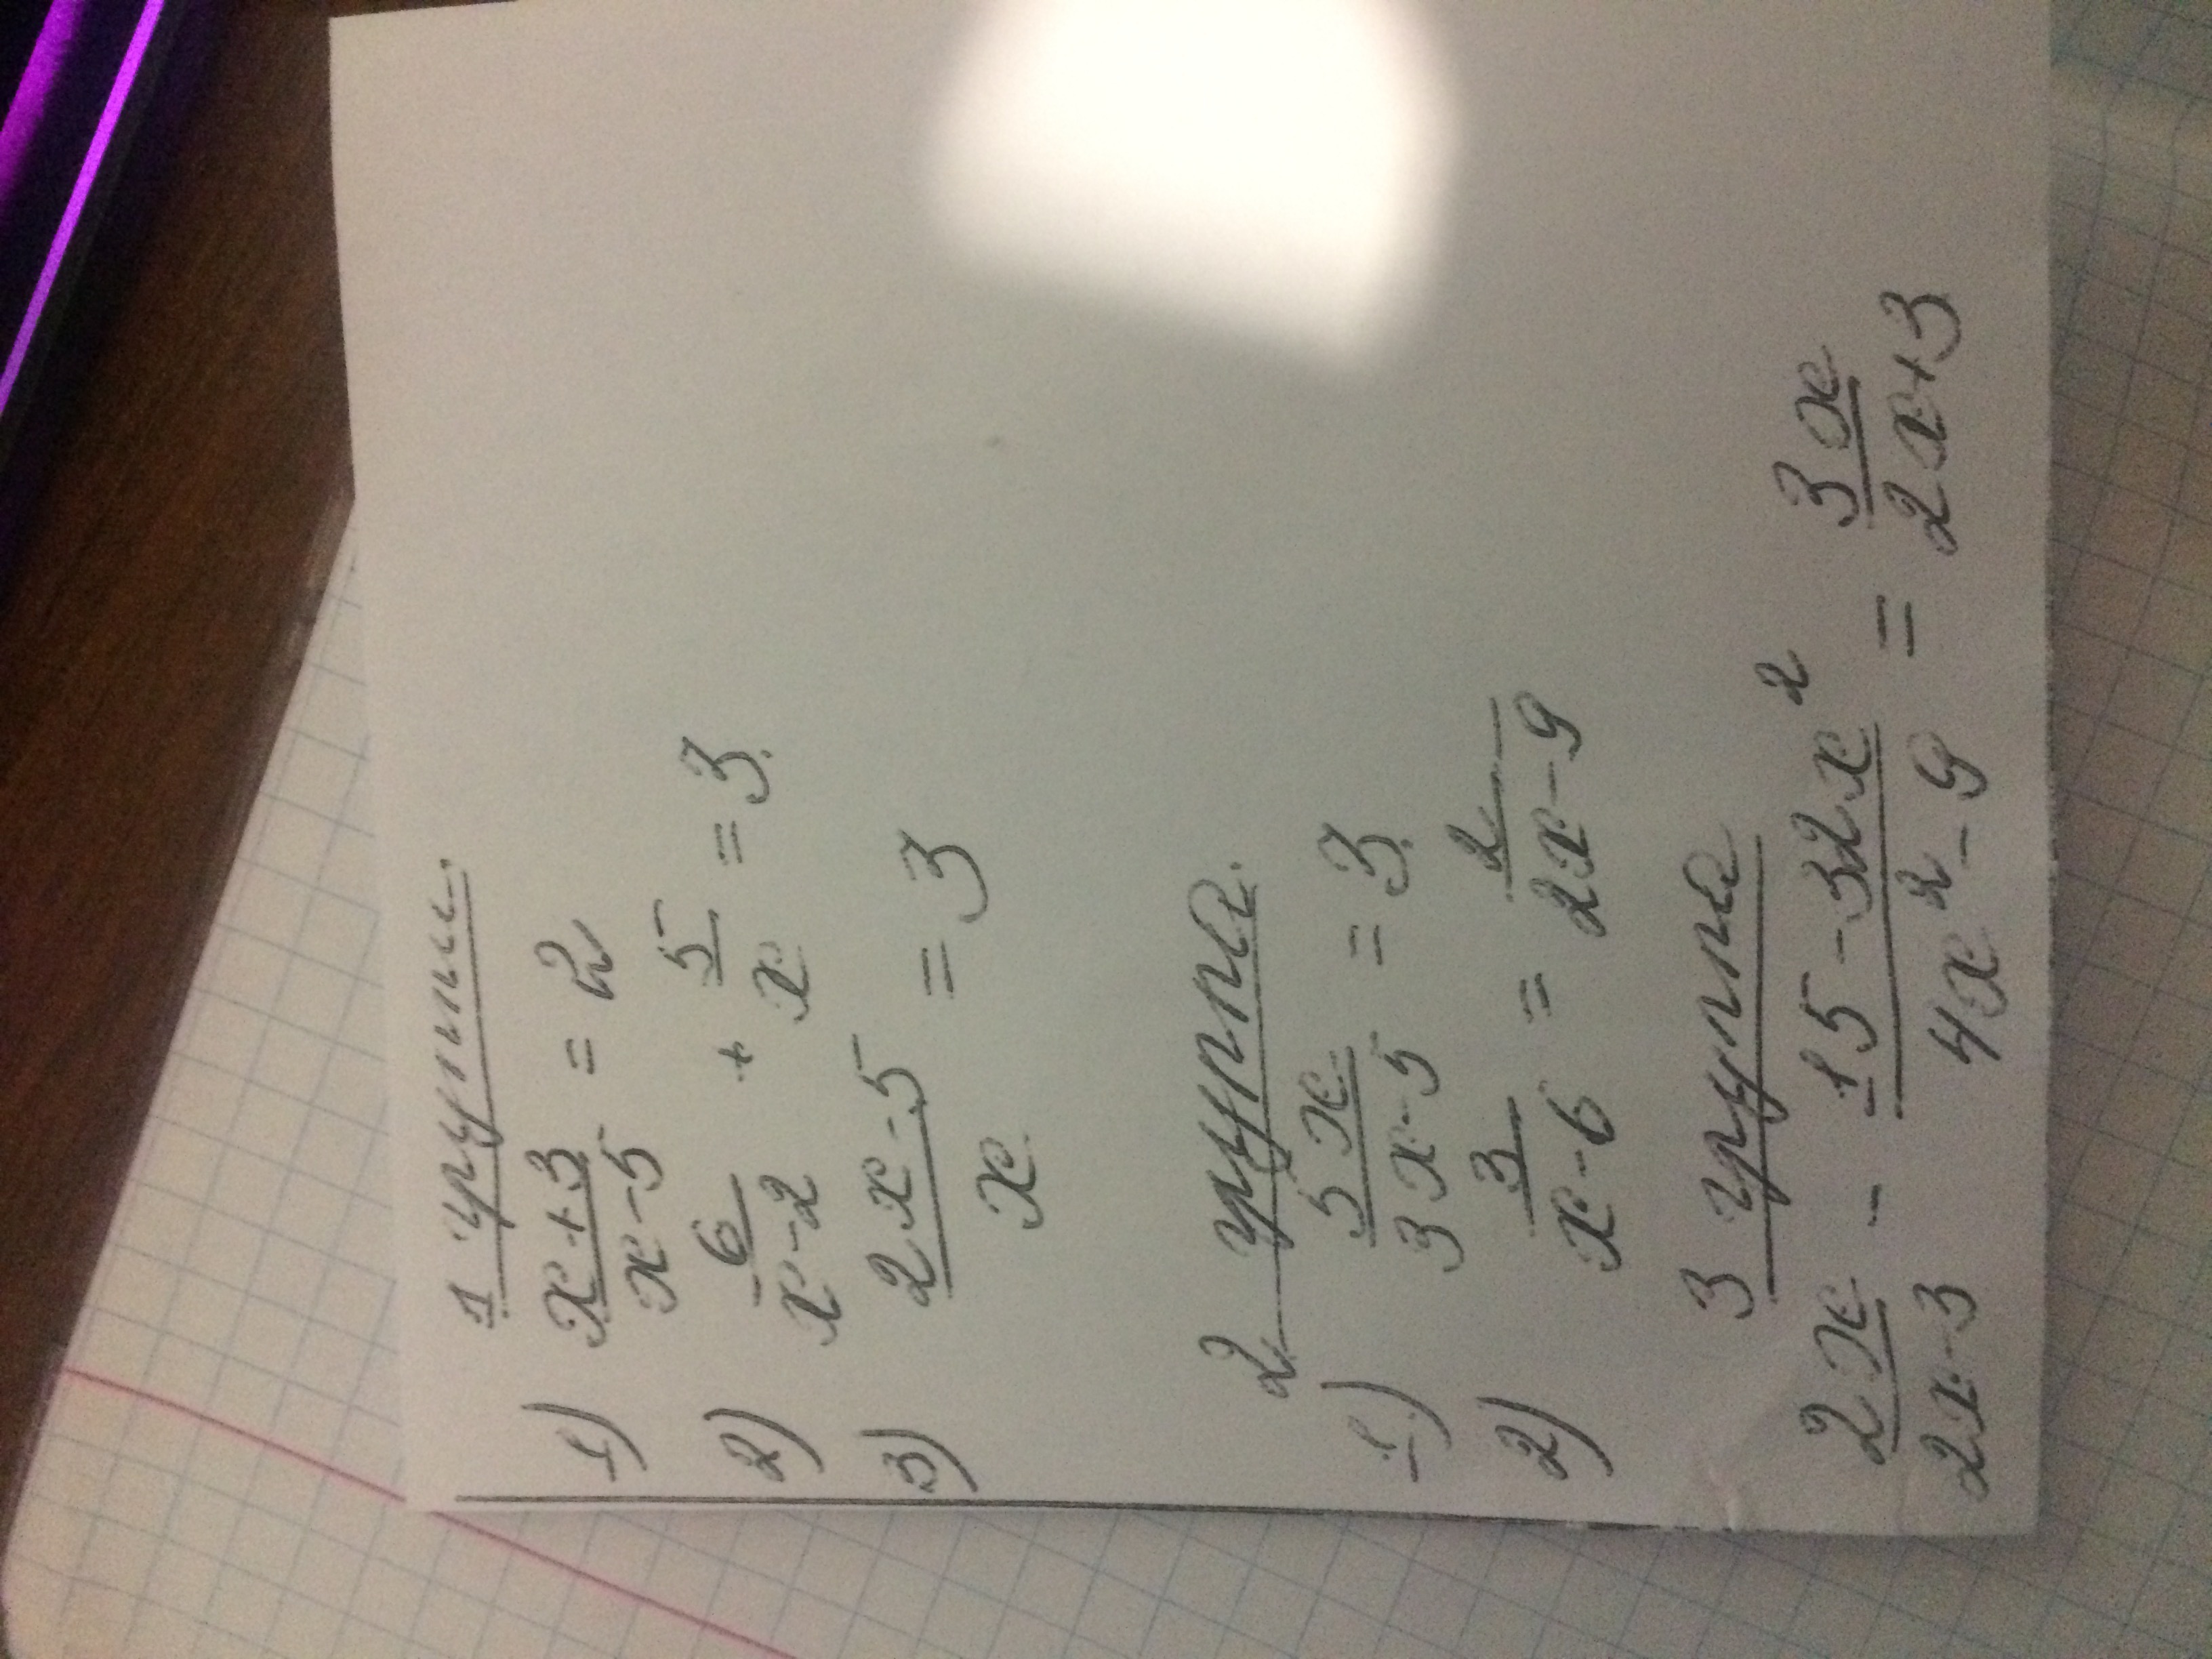 1 группы.
1) x+3/x-5 = 2
2) 6/x-2 + 5/x = 3.
3) 2x-5/x = 3
2 группа.
1) 5x/3x-5 = 3.
2) 3/x-6 = 2/2x-9
3 группа
2x/2x-3 - 15-32x²/4x²-9 = 3x/2x+3